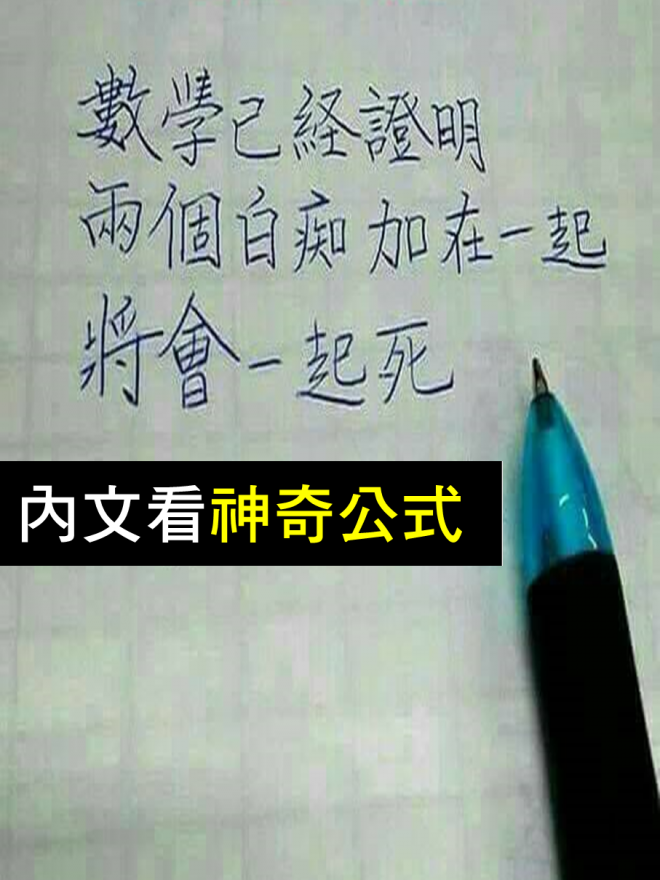 數學已経證明
兩個白痴加在一起
將會一起死
內文看神奇公式